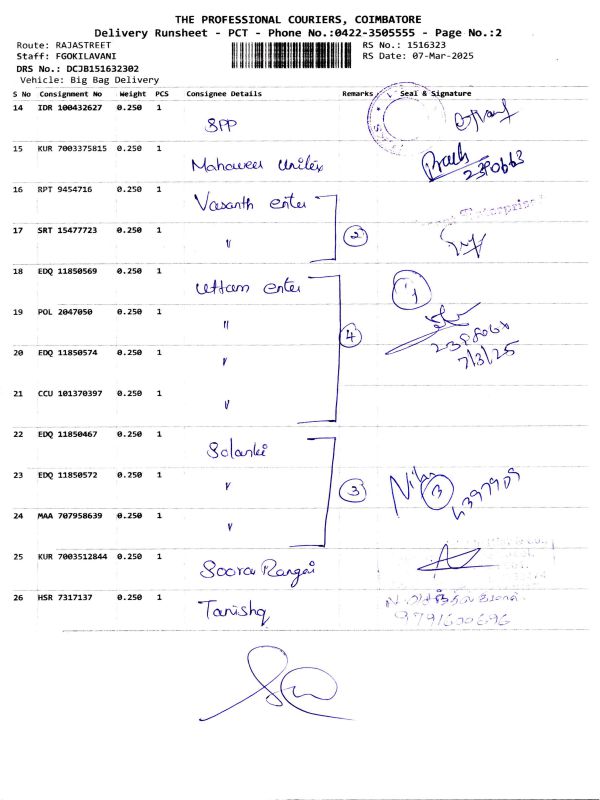 THE PROFESSIONAL COURIERS, COIMBATORE
Delivery Runsheet - PCT - Phone No.:0422-3505555 - Page No.:2
Route: RAJASTREET RS No.: 1516323
Staff: FGOKILAVANI RS Date: 07-Mar-2025
DRS No.: DCJB151632302
Vehicle: Big Bag Delivery
S No Consignment No Weight PCS Consignee Details Remarks Seal & Signature
14 IDR 100432627 0.250 1 SPP
15 KUR 7003375815 0.250 1 Mahaveer Unitex
16 RPT 9454716 0.250 1 Vasanth enter
17 SRT 15477723 0.250 1 " 2
18 EDQ 11850569 0.250 1 Uttam enter
19 POL 2047050 0.250 1 " 4
20 EDQ 11850574 0.250 1 "
7/3/25
21 CCU 101370397 0.250 1 "
22 EDQ 11850467 0.250 1 Solanki
23 EDQ 11850572 0.250 1 " 3
24 MAA 707958639 0.250 1 "
25 KUR 7003512844 0.250 1 Soora Rangai
26 HSR 7317137 0.250 1 Tanishq